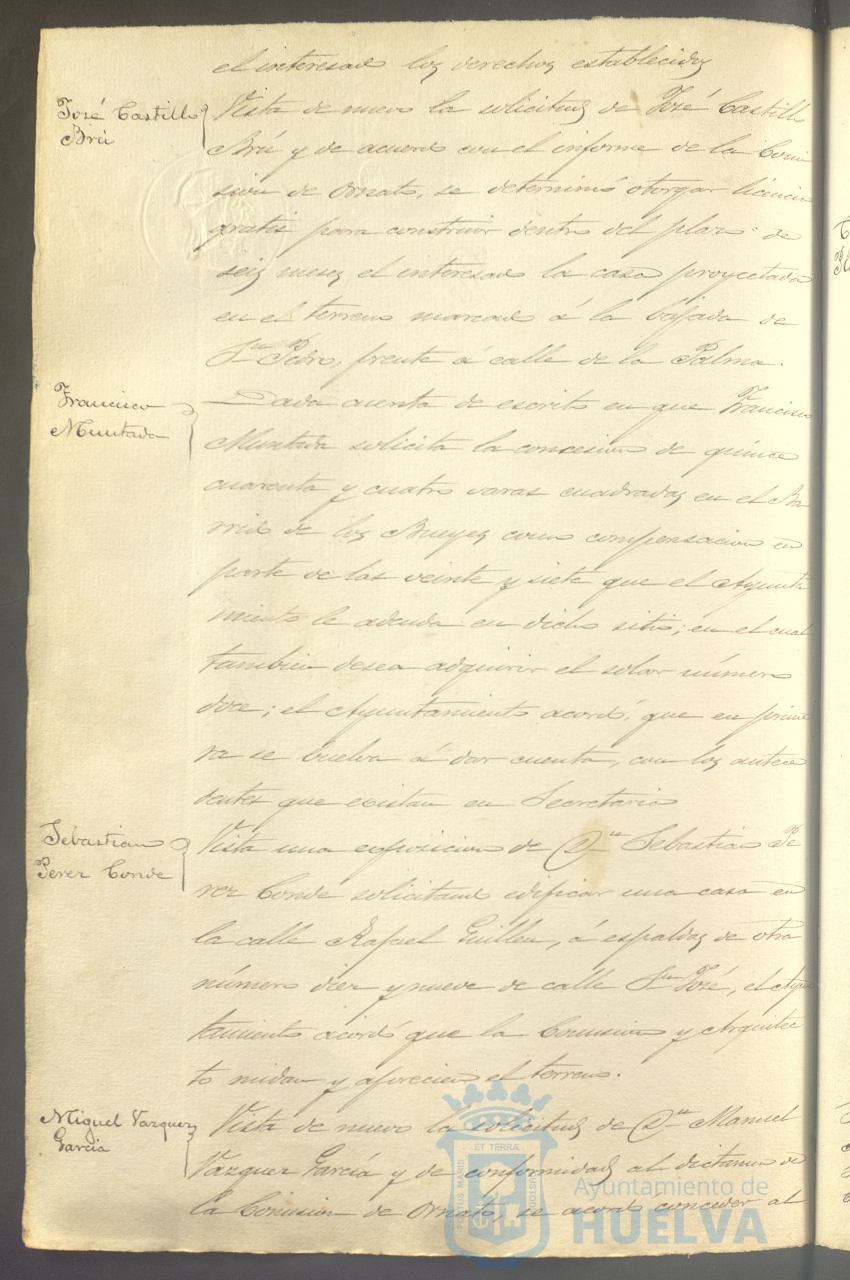 el interesado los derechos establecidos
José Castillo
Brú
Vista de nuevo la solicitud de José Castillo
Brú y de acuerdo con el informe de la Comi
sion de Ornato, se determinó otorgar licencia
gratis para construir dentro del plazo de
seis meses el interesado la casa proyectada
en el terreno marcado á la bajada de
Sn Pedro, frente á calle de la Palma.
Francisco
Muntada
Dada cuenta de escrito en que Francisco
Muntada solicita la concesion de quince
cuarenta y cuatro varas cuadradas en el Ba
rrio de los Bueyes como compensacion en
parte de las veinte y siete que el Ayunta
miento le adeuda en dicho sitio; en el cual
tambien desea adquirir el solar número
doce; el Ayuntamiento acordó, que en prime
ra se vuelva á dar cuenta, con los antece
dentes que existan en Secretaria
Sebastian
Perez Conde
Vista una exposicion de Dn Sebastián Pe
rez Conde solicitando edificar una casa en
la calle Rafael Guillen, á espaldas de otra
número diez y nueve de calle Sn José, el Ayun
tamiento acordó que la Comision y Arquitec
to midan y aprecien el terreno.
Miguel Vazquez
Garcia
Vista de nuevo la solicitud de Dn Manuel
Vazquez García y de conformidad al dictamen de
la Comision de Ornato, se acordó conceder al
PORTUS MARIS ET TERRÆ CUSTODIA
Ayuntamiento de
HUELVA